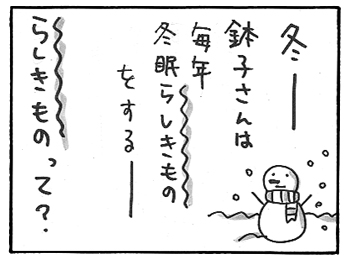 冬──
鉢子さんは
毎年
冬眠らしきもの
をする──
らしきものって？